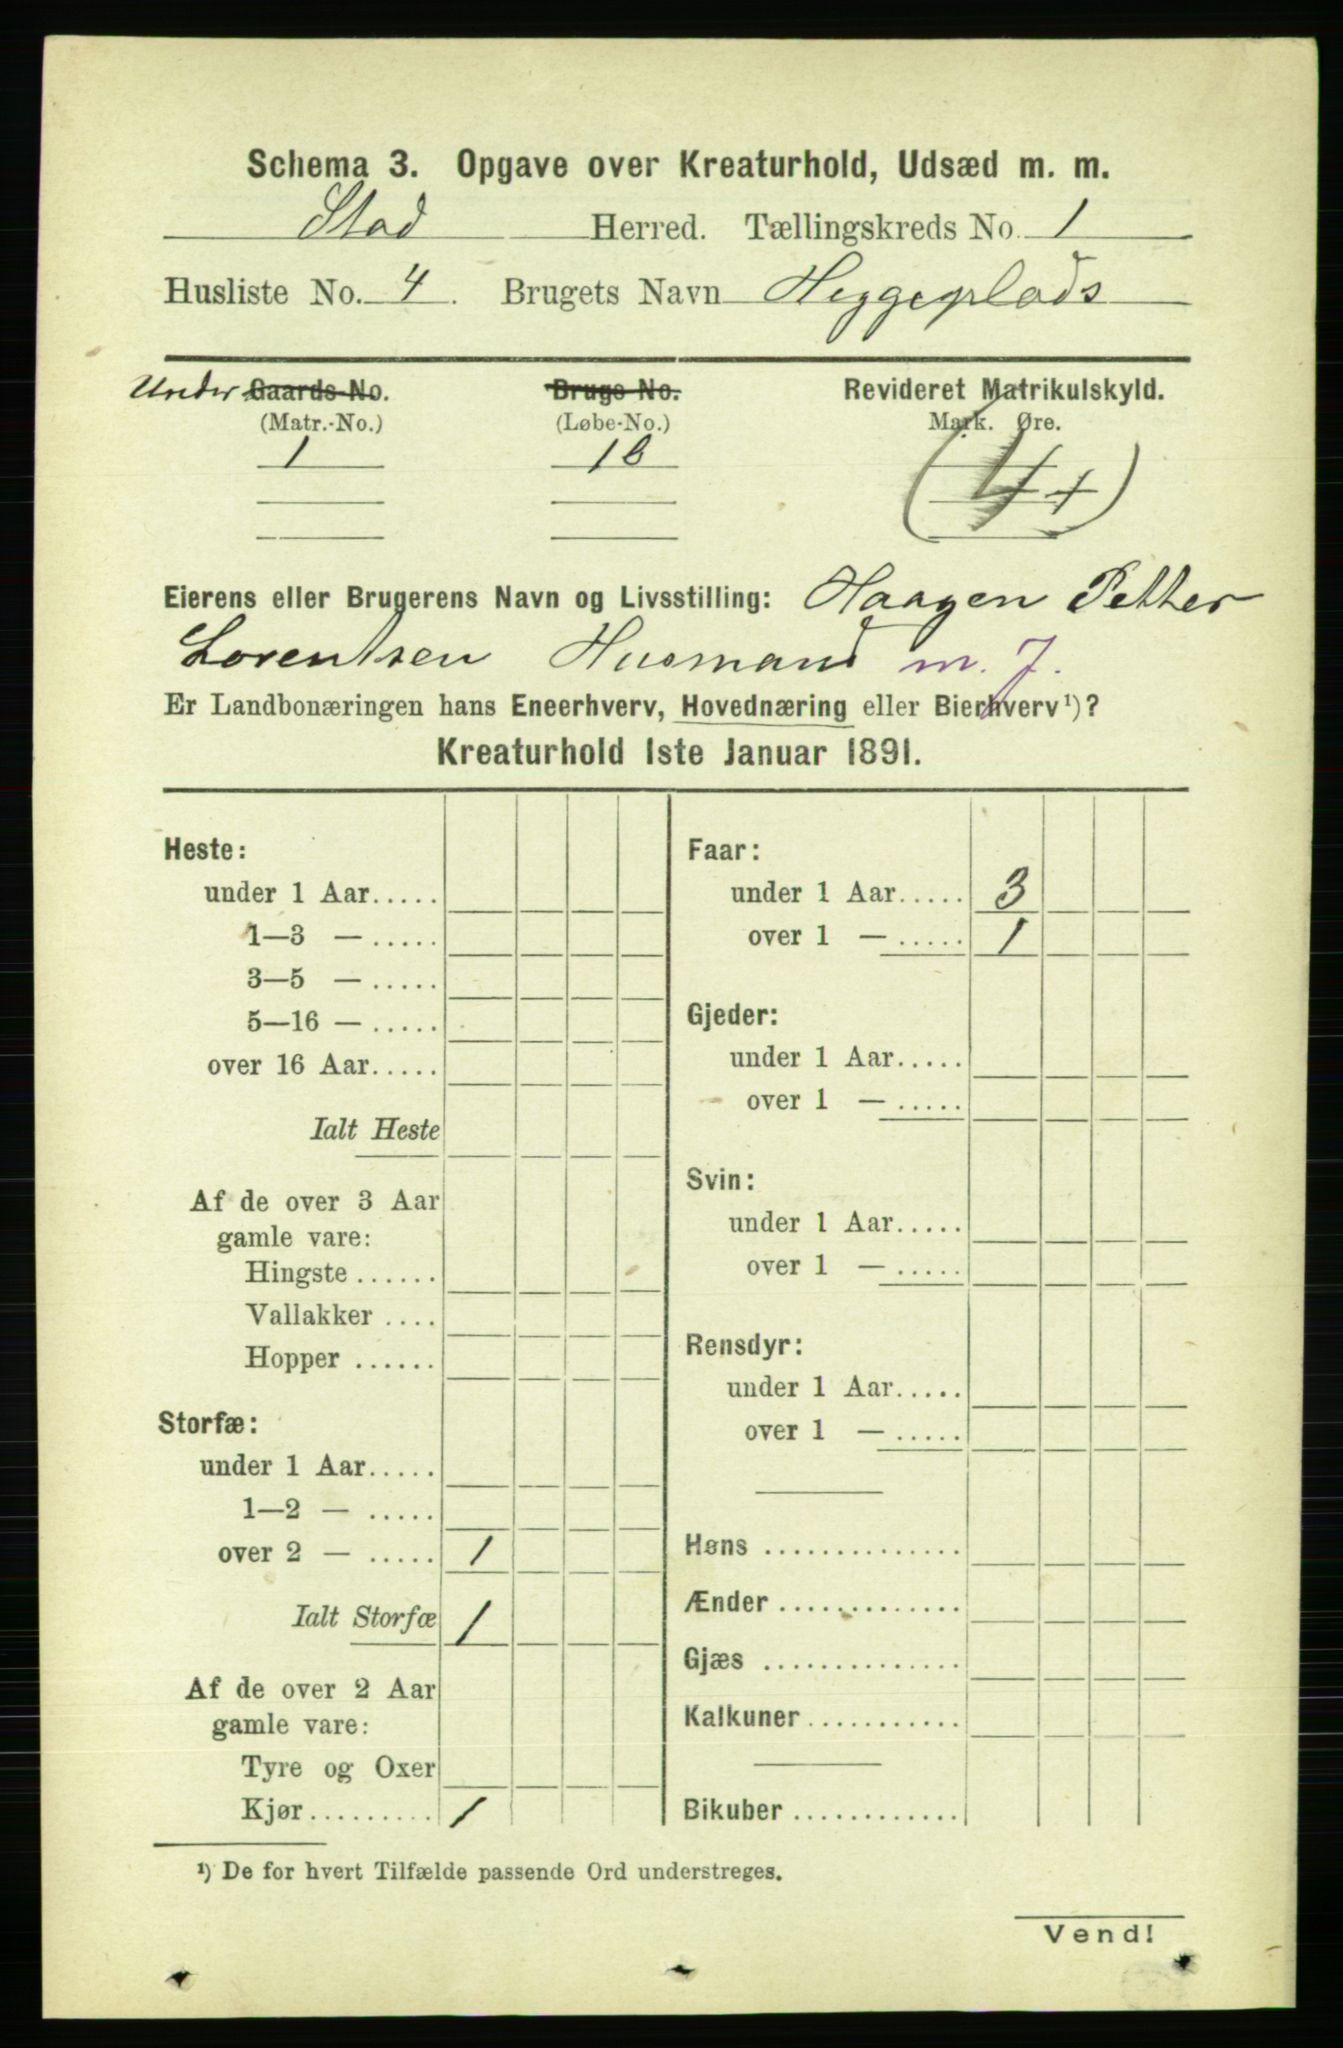 Schema 3. Opgave over Kreaturhold, Udsæd m. m.
Stod Herred. Tællingskreds No. 1
Husliste No. 4. Brugets Navn Heggeplads
Under Gaards No. Brugs No. Revideret Matrikulskyld.
(Matr.-No.) (Løbe-No.) Mark. Øre.
1 18
Eierens eller Brugerens Navn og Livsstilling: Haagen Petter
Lorentsen Husmand m. J.
Er Landbonæringen hans Eneerhverv, Hovednæring eller Bierhverv¹)?
Kreaturhold 1ste Januar 1891.
Heste:
under 1 Aar.....
1—3 — .....
3—5 — .....
5—16 — .....
over 16 Aar.....
Ialt Heste
Af de over 3 Aar
gamle vare:
Hingste ......
Vallakker ....
Hopper ......
Storfæ:
under 1 Aar.....
1—2 — .....
over 2 — ..... 1
Ialt Storfæ 1
Af de over 2 Aar
gamle vare:
Tyre og Oxer
Kjør......... 1
Faar:
under 1 Aar..... 3
over 1 — ..... 1
Gjeder:
under 1 Aar.....
over 1 — .....
Svin:
under 1 Aar.....
over 1 — .....
Rensdyr:
under 1 Aar.....
over 1 — .....
Høns ..............
Ænder .............
Gjæs ..............
Kalkuner...........
Bikuber ............
¹) De for hvert Tilfælde passende Ord understreges.
Vend!